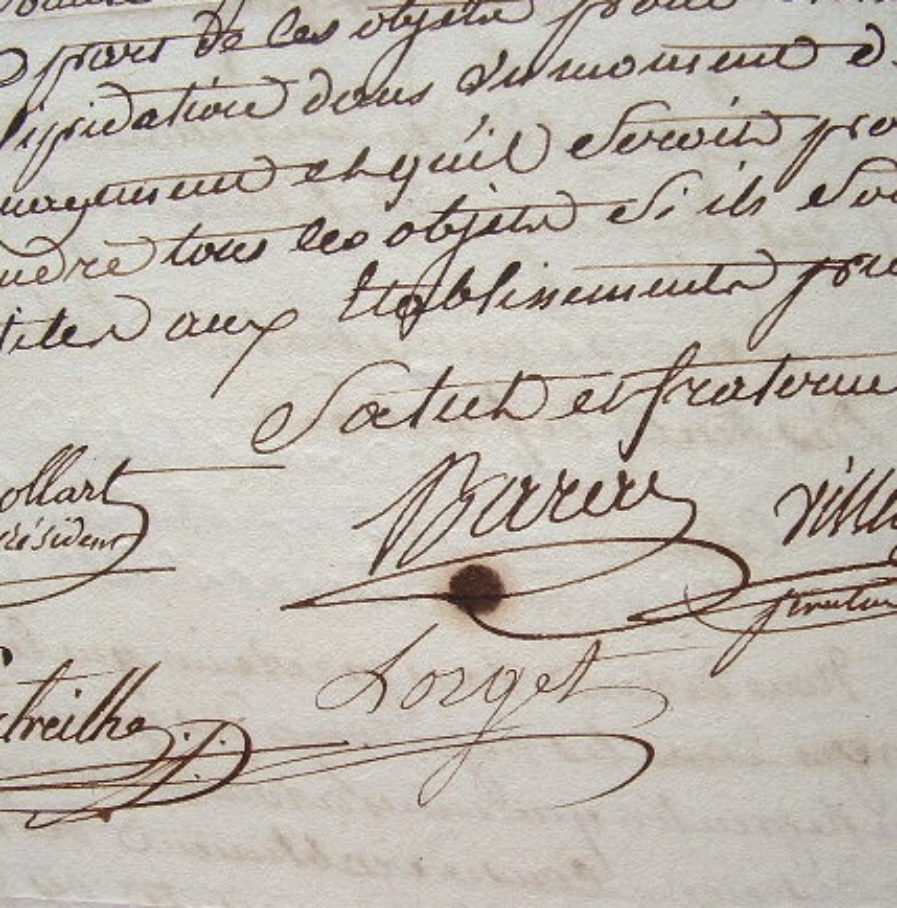 part de ces objets pour
liquidation dans un moment d
et qu'il seroit pro
endre tous les objets si ils so
tiles aux Etablissements
Salut et fraterni
ollart
résident
Barere
ville
treilhe
Lorget